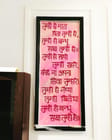 तुम्ही हो माता
पिता तुम्ही हो,
तुम्ही हो बन्धु
सखा तुम्ही हो।
तुम्ही हो साथी
तुम्ही सहारे,
कोई ना अपना
सिवा तुम्हारे
तुम्ही हो नैया
तुम्ही खिवैया
तुम्ही हो बन्धु
सखा तुम्ही हो।